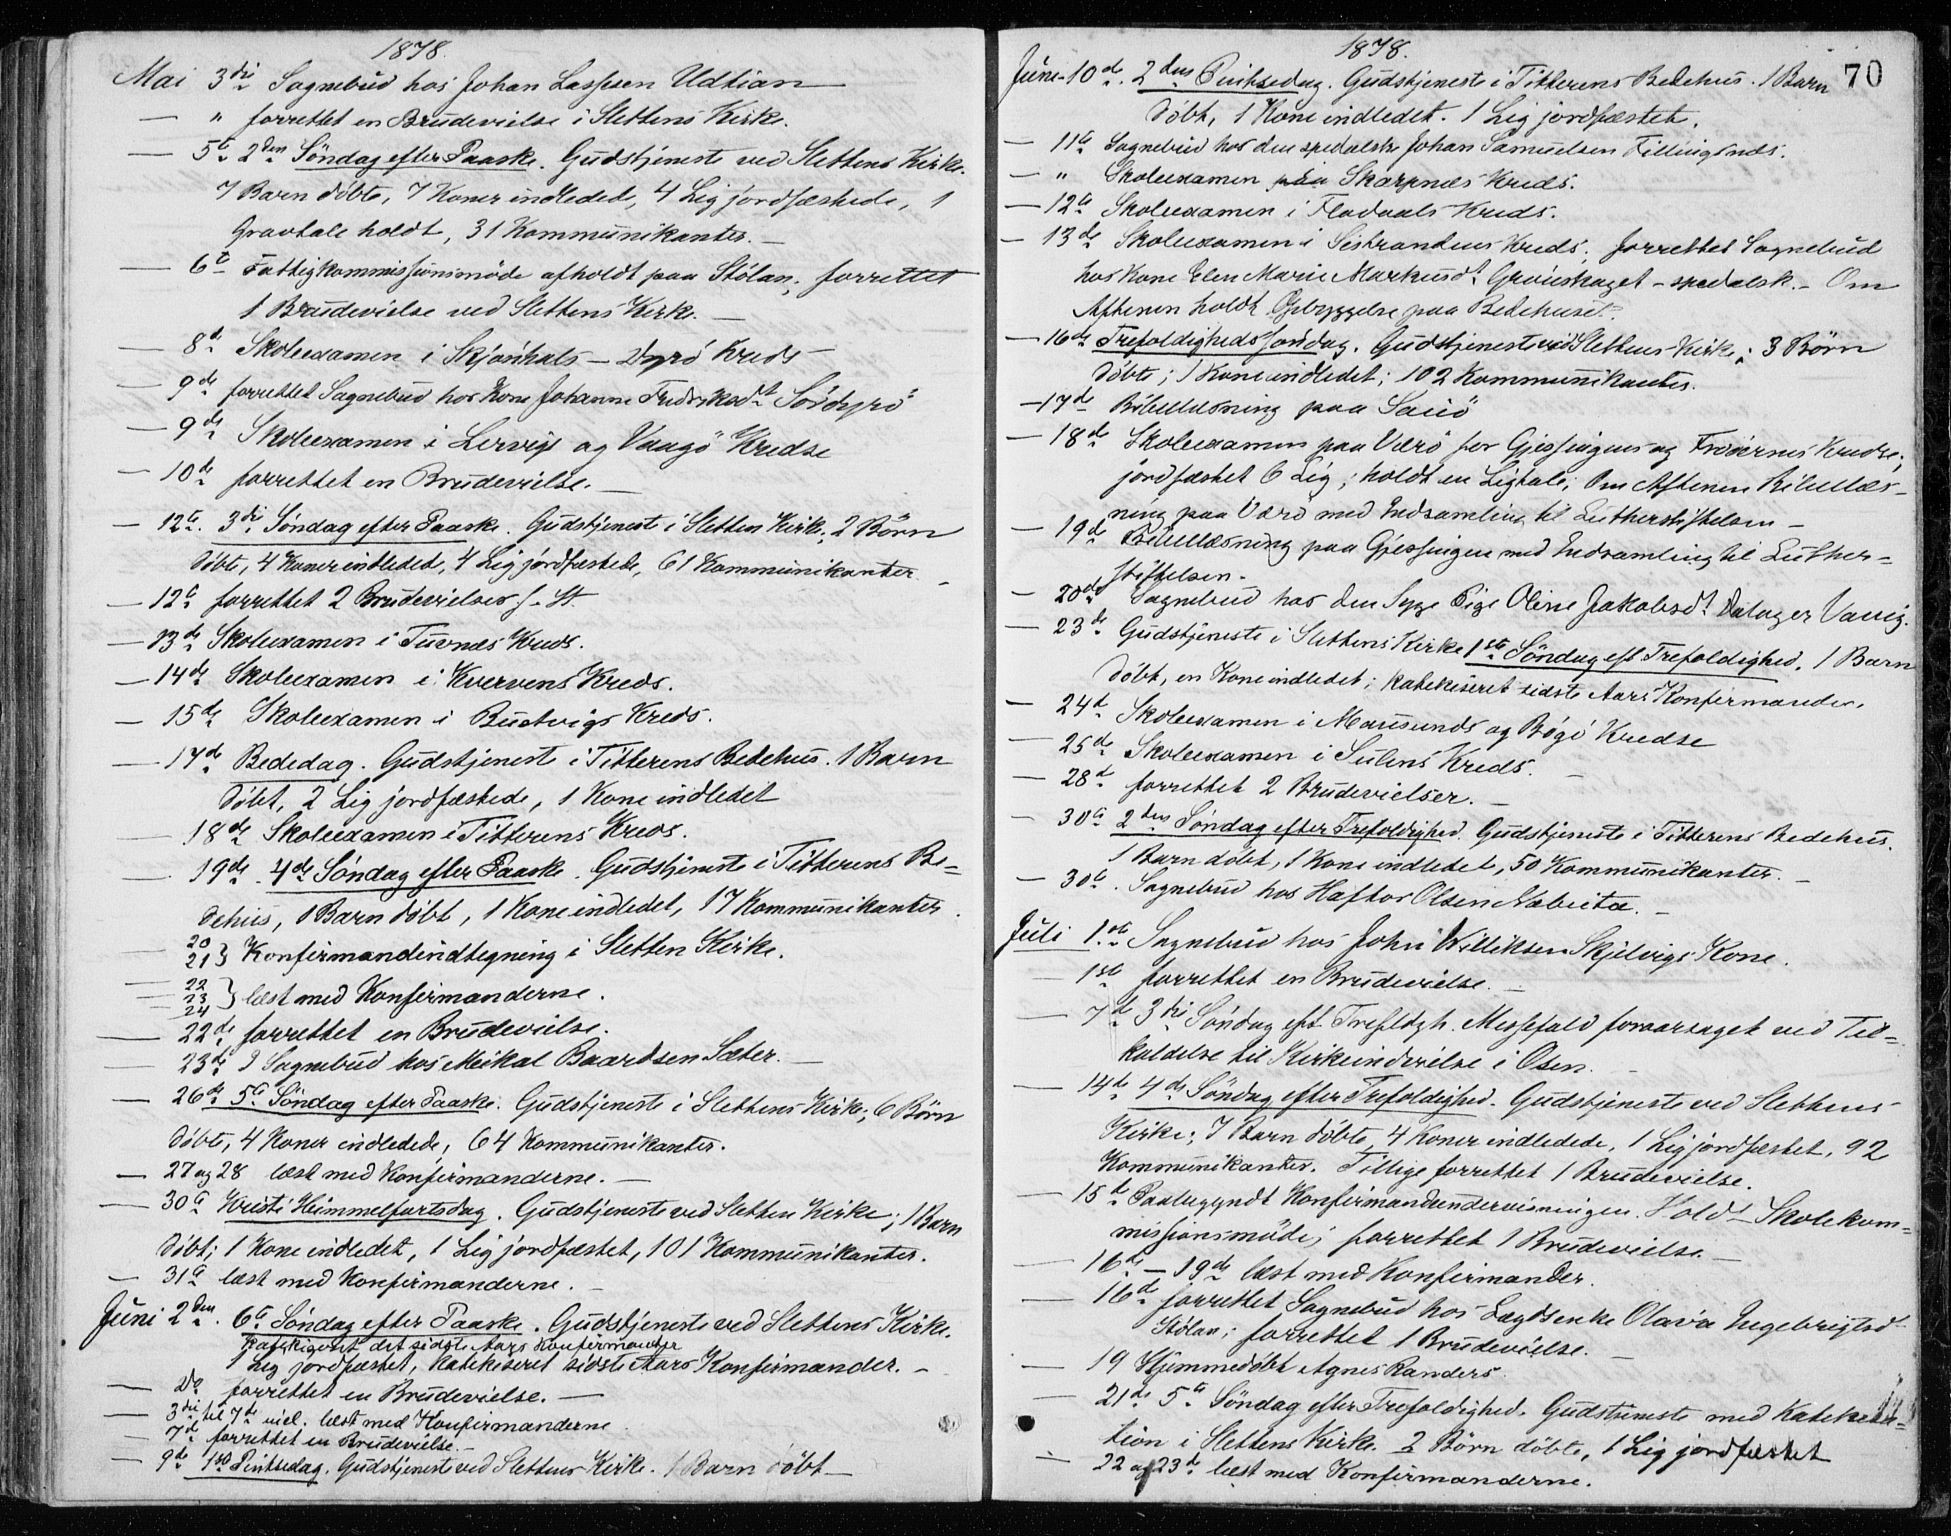 1878.
Mai 3di Sognebud hos Johan Lassesen Udtian
— " forrettet en Brudevielse i Slettens Kirke.
— 5te 2den Söndag efter Paaske. Gudstjeneste ved Slettens Kirke.
7 Barn döbte, 7 Koner indledede, 4 Lig jordfæstede, 1
Gravtale holdt, 31 Kommunikanter. —
— 6te Fattigkommissionsmöde afholdt paa Stölan; forrettet
1 Brudevielse ved Slettens Kirke. —
— 8de Skoleexamen i Skjönhals — Dyrö Kreds —
— 9de forrettet Sognebud hos Kone Johanne Fredriksdt Sördyrö
— 9de Skoleexamen i Lervigs og Vaagö Kredse
— 10de forrettet en Brudevielse. —
— 12te. 3die Söndag efter Paaske. Gudstjeneste i Sletten Kirke; 2 Börn
döbte, 4 Koner indledet, 4 Lig jordfæstede, 61 Kommunikanter —
— 12te forrettet 2 Brudevielser s. St.
— 13de Skoleexamen i Tuvnes Kreds.
— 14de Skoleexamen i Kvervens Kreds.
— 15de Skoleexamen i Budvigs Kreds.
— 17de Bededag. Gudstjeneste i Titterens Bedehus. 1 Barn
döbt, 2 Lig jordfæstede, 1 Kone indledet
— 18de Skoleexamen i Titterens Kreds.
— 19de 4de Söndag efter Paaske. Gudstjeneste i Titterens Be=
dehus, 1 Barn döbt, 1 Kone indledet, 17 Kommunikanter.
— 20
21 } Konfirmandindtegning i Sletten Kirke.
— 22
23 } læst med Konfirmanderne.
24
— 22de forrettet en Brudevielse.
— 23de Sognebud hos Mikal Baardsen Sæter. —
— 26de 5te Söndag efter Paaske. Gudstjeneste i Slettens Kirke; 6 Börn
döbte, 4 Koner indledede, 64 Kommunikanter.
— 27 og 28 læst med Konfirmanderne. —
— 30te Kristi Himmelfartsdag. Gudstjeneste ved Sletten Kirke; 1 Barn
döbt; 1 Kone indledet, 1 Lig jordfæstet, 101 Kommunikanter.
— 31te læst med Konfirmanderne. —
Juni 2den. 6te Söndag efter Paaske. Gudstjeneste ved Slettens Kirke.
Katekiseret det sidste Aars Konfirmander
1 Lig jordfæstet, katekiseret sidste Aars Konfirmander. —
— Do forrettet en Brudevielse. —
— 3die til 7de incl. læst med Konfirmanderne
— 7de forrettet en Brudevielse. —
— 9de 1ste Pintsedag. Gudstjeneste ved Slettens Kirke. 1 Barn döbt —
1878.
70
Juni 10de. 2den Pintsedag. Gudstjeneste i Titterens Bedehus. 1 Barn
döbt, 1 Kone indledet. 1 Lig jordfæstet.
— 11te Sognebud hos den spedalske Johan Samuelsen Fillingsnes.
— " Skoleexamen paa Skarpnes Kreds.
— 12te Skoleexamen i Fladvals Kreds.
— 13de Skoleexamen i Sistrandens Kreds; forrettet Sognebud
hos Kone Elen Marie Markusdt Grönskaget — spedalsk. — Om
Aftenen holdt Opbyggelse paa Bedehuset.
— 16de Trefoldighedssöndag. Gudstjeneste ved Slettens Kirke; 3 Börn
döbte; 1 Kone indledet; 102 Kommunikanter.
— 17de Bibellæsning paa Sauö
— 18de Skoleexamen paa Værö for Gjessingens og Fröernes Kredse;
jordfæstet 6 Lig; holdt en Ligtale; Om Aftenen bibellæs-
ning paa Værö med Indsamling til Lutherstiftelsen —
— 19de Bibellæsning paa Gjessingen med Indsamling til Luther-
stiftelsen.
— 20de Sognebud hos den syge Pige Oline Jakobsdt Valager Vauig.
— 23de Gudstjeneste i Slettens Kirke 1ste Söndag eft Trefoldighed. 1 Barn
döbt, en Kone indledet; katekiseret sidste Aars Konfirmander.
— 24de Skoleexamen i Mausunds og Bögö Kredse
— 25de Skoleexamen i Sulens Kreds. —
— 28de forrettet 2 Brudevielser. —
— 30te 2den Söndag efter Trefoldighed. Gudstjeneste i Titterens Bedehus.
1 Barn döbt, 1 Kone indledet, 50 Kommunikanter. —
— 30te. Sognebud hos Haftor Olsen Nabeita. —
Juli 1ste Sognebud hos John Williksen Skjelvigs Kone.
— 1ste forrettet en Brudevielse. —
— 7de 3die Söndag eft Trefldgh. Messefald foraarsaget ved Til=
kaldelse til Kirkeindvielse i Osen. —
— 14de 4de Söndag efter Trefoldighed. Gudstjeneste ved Slettens
Kirke; 7 Barn döbte, 4 Koner indledede, 1 Lig jordfæstet, 92
Kommunikanter. Tillige forrettet 1 Brudevielse.
— 15de Paabegyndt Konfirmandundervisningen. Holdt Skolekom=
missionsmöde; forrettet 1 Brudevielse —
— 16de — 19de læst med Konfirmander.
— 16de forrettet Sognebud hos Lægdsenke Olava Ingebrigtsdt
Stölan; forrettet 1 Brudevielse. —
— 19 Hjemmedöbt Agnes Randers
— 21de 5te Söndag efter Trefoldighed. Gudstjeneste med Katekesa=
tion i Slettens Kirke. 2 Börn döbte, 1 Lig jordfæstet
— 22 og 23de læst med Konfirmanderne.